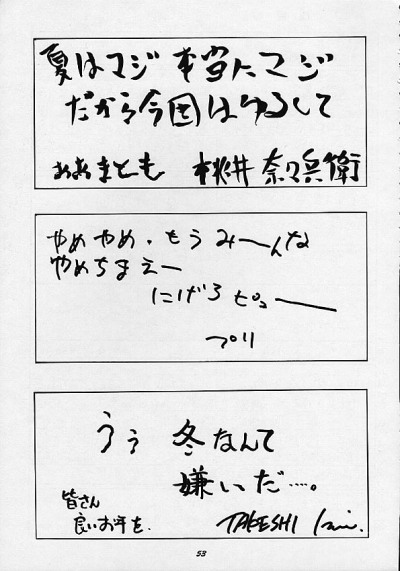 夏はマジ 本当にマジ
だから今回はゆるして
おおまとも 桃井 奈々兵衛
やめやめ・もうみーんな
やめちまえー
にげろ ピューー
プリ
うぅ 冬なんて
嫌いだ…。
皆さん
良いお年を.
TAKESHI
53